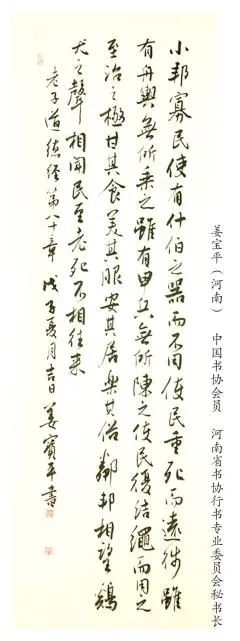 小邦寡民使有什伯之器而不用使民重死而遠徙雖
有舟輿無所乘之雖有甲兵無所陳之使民復結繩而用之
至治之極甘其食美其服安其居樂其俗鄰邦相望鷄
犬之聲相聞民至老死不相往來
老子道德经第八十章 戊子夏月吉日 姜寶平書
姜宝平（河南） 中国书协会员 河南省书协行书专业委员会秘书长